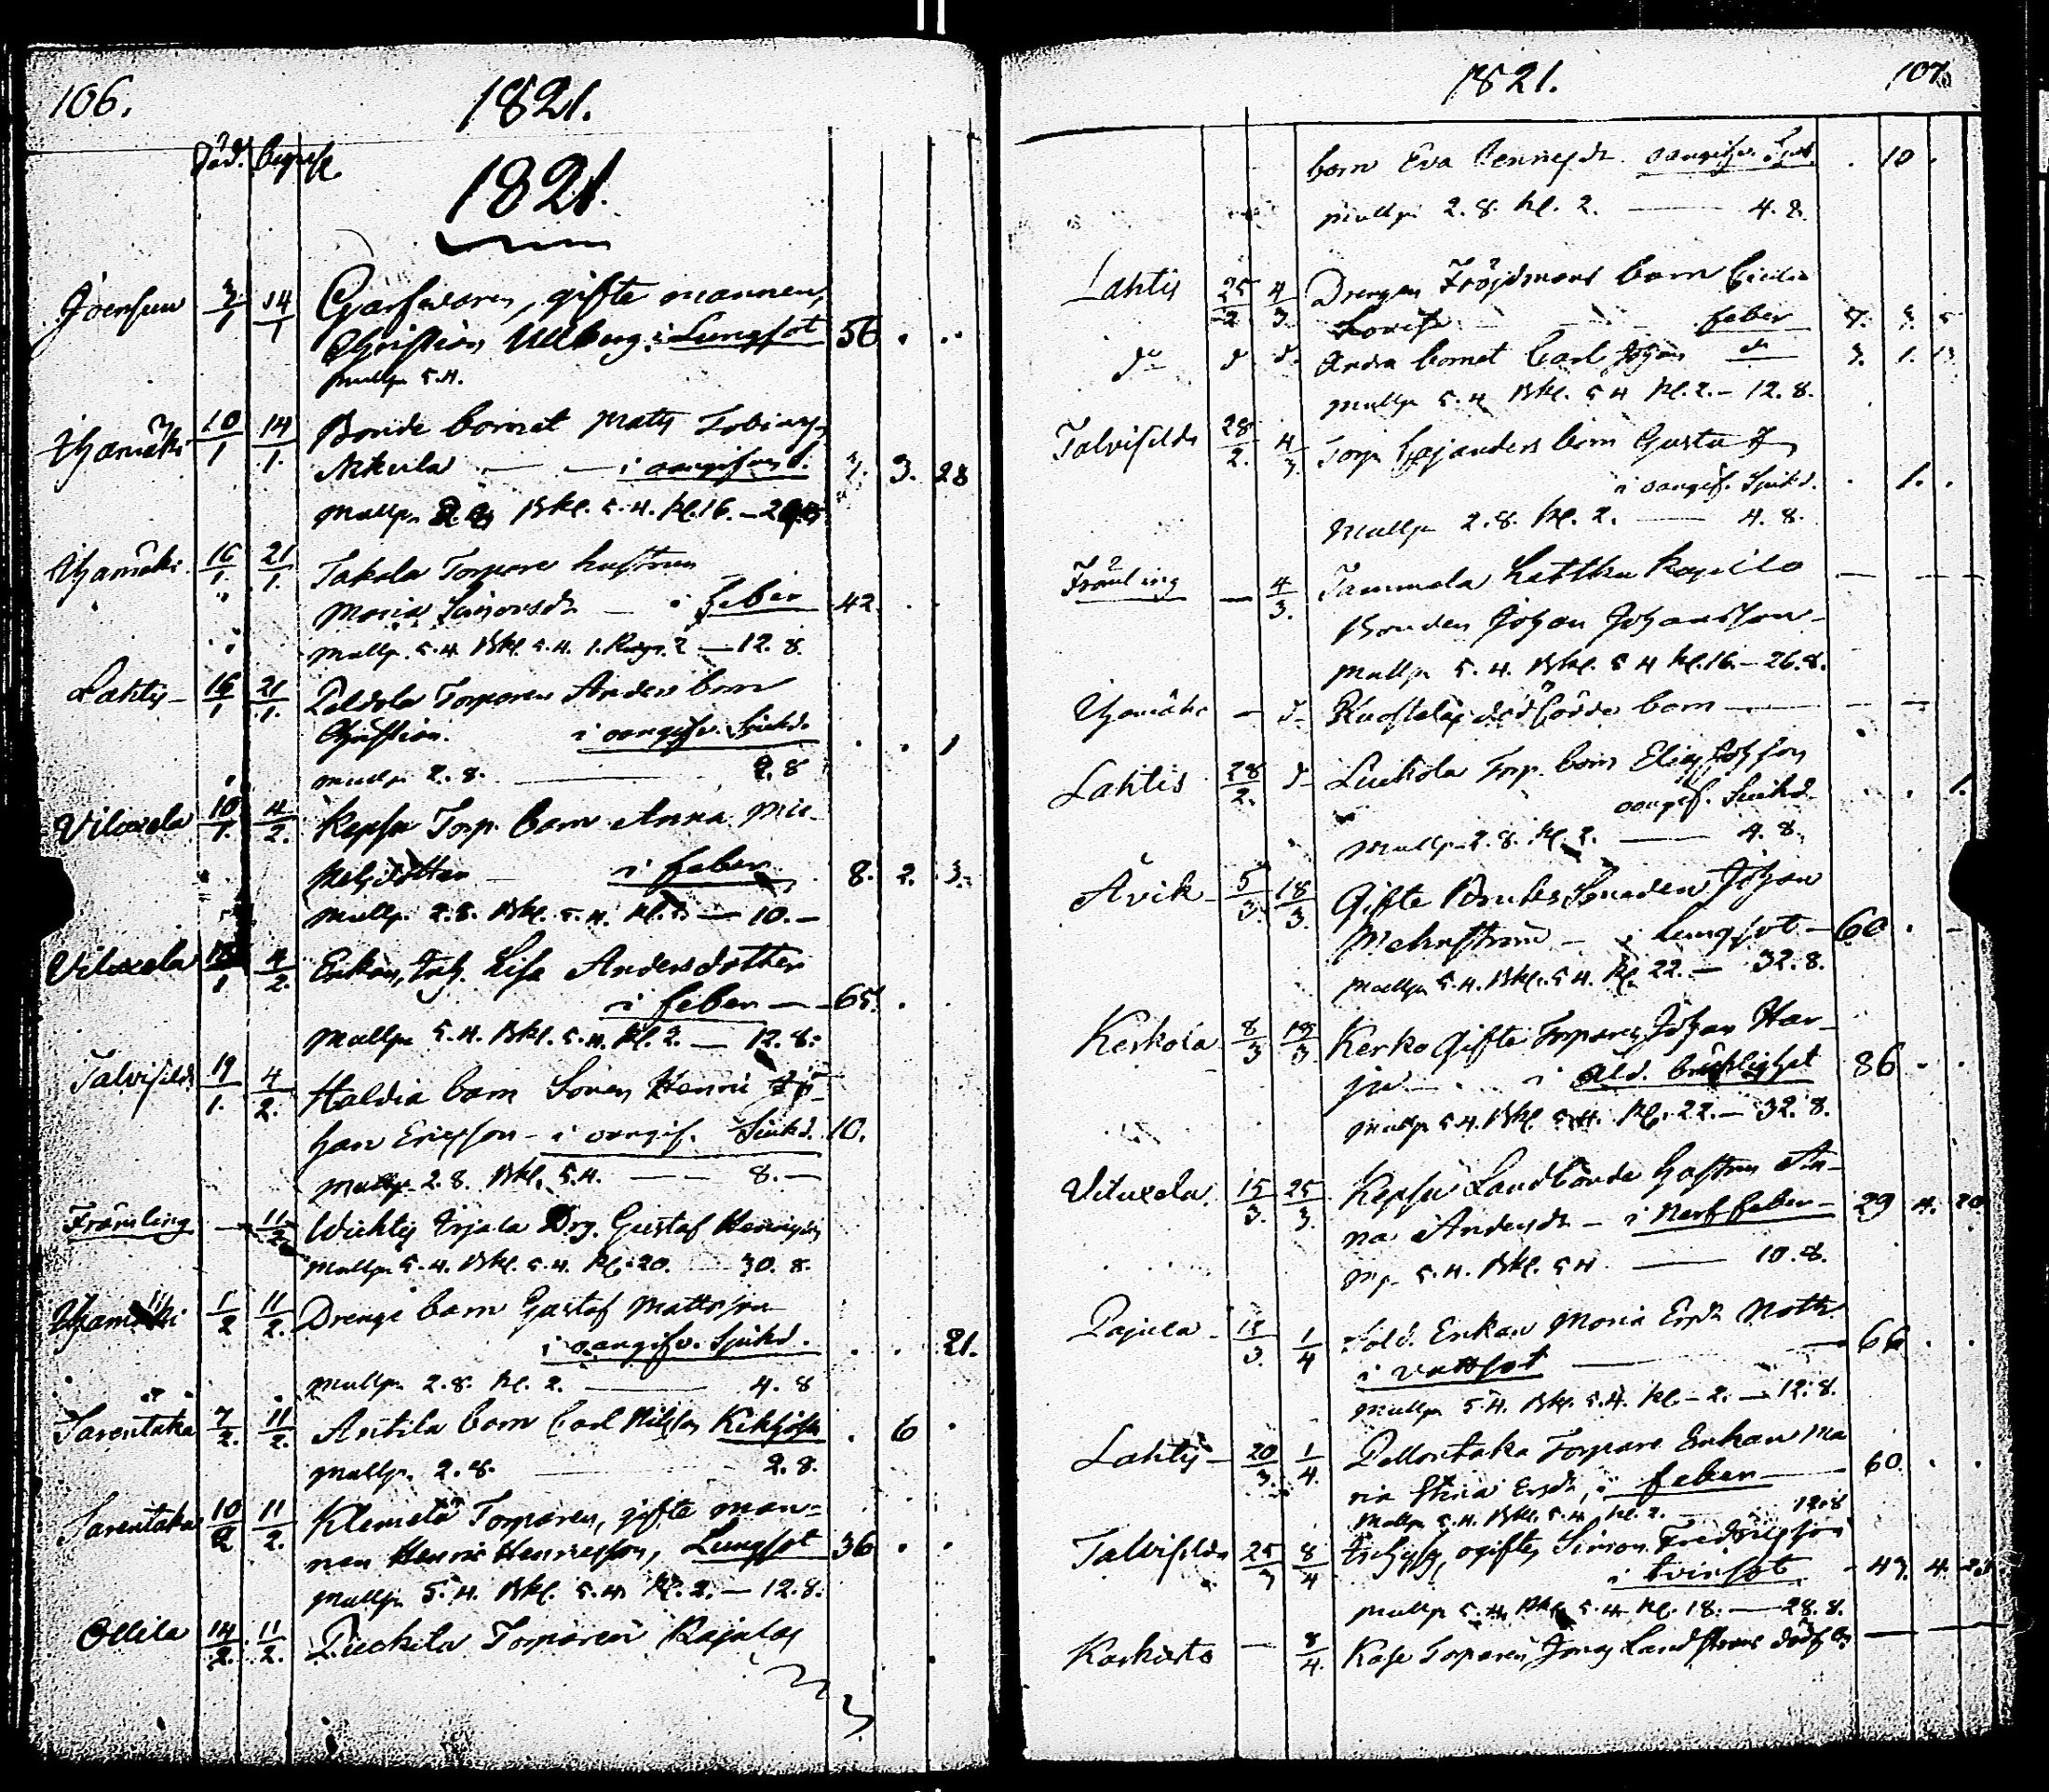 106.
1821.
Död. Begrafn
1821.
Joensuu 3/1 14/1 Garfvaren, gifte mannen,
Christian Ullberg i Lungsot 56 . .
mullp. 5.4.
10/1 14/1. Bonde barnet Matts Tobiass.
i oangifven s. 3. 28
Mullp. Bkl. 5.4. Kl. 16.
16/1. 21/1. Takala Torpare hustrun
Maria Simonsdr — i feber 42 . .
Mullp. 5.4. Bkl. 5.4. 2 — 12. 8.
Lahtis – 16/1 21/1. Peldola Torparen Anders barn
Christian. i oangifv. Siukd. . . 1
mullp. 2. 8. — 2. 8
Viluxela 10/1. 4/2. Kepsu Torp. barn Anna Mic-
kelsdotter — i feber 8. 2. 3.
Mullp. 2. 8. Bkl. 5.4. Kl. 2. — 10. –
Viluxela 4/2. Enkan, Inh. Lisa Andersdotter
i feber — 65. .
Mullp. 5.4. Bkl. 5.4. Kl. 2. — 12. 8.
Talvisilda 19/1. 4/2. Haldia barn Sonen Henric Jo-
han Ericsson – i oangif. Siukd. 10.
Mullp. 2. 8. Bkl. 5.4. — 8. –
Främling — 11/2 Wichtis Irjala Drg. Gustaf Henricss
Mullp. 5.4. Bkl. 5.4. Kl. 20. 30. 8.
1/2 11/2. Drengs barn Gustaf Mattsson
i oangifv. Sjukd. . . 21.
Mullp. 2. 8. Kl. 2. — 4. 8
Sarentaka 7/2. 11/2. Antila barn Carl Nilsson Kikhosta . 6 .
Mullp. 2. 8. — 2. 8.
Sarentaka 10/2 11/2. Klemelä Torparen, gifte man-
nen Henric Henricsson, Lungsot 36 . .
Mullp. 5.4. Bkl. 5.4. Kl. 2. — 12. 8.
Ollila 14/2. 11/2. Torparen Kajalas
1821. 107.
barn Eva Henricsdr oangifv. Sjuk . 10 .
Mullp. 2. 8. Kl. 2. — 4. 8.
Lahtis 25/2 4/3. Drengen Fröjdmans barn Cicilia
Lovisa feber
do d. d. Andra barnet Carl Johan do 3. 1. 13
Mullp. 5.4. Bkl. 5 4 Kl. 2. – 12. 8.
Talvisilda 28/2. 4/3. Torp. Cajanders barn Gusta
i oangif. Sjukd. . 1. .
Mullp. 2. 8. Kl. 2. — 4. 8.
Främling — 4/3. Tammela Kapell — —
Bonden Johan Johansson –
Mullp. 5.4. Bkl. 5 4 Kl. 16. – 26. 8.
— d. dödfödde barn — — —
Lahtis 28/2. d– Torp. barn Elias Johsson
oangif. Siukd. . . 1.
Mullp. 2. 8. Kl. 2. — 4. 8.
Åvik – 5/3. 18/3. Gifte Bruks Smeden Johan
Malmström – i Lungsot – 60 . –
Mullp. 5.4. Bkl. 5.4. Kl. 22. – 32. 8.
Kerkola 8/3 18/3. Kerko Gifte Torparen Johan Har-
ju – i Åld. bräcklighet 86 . .
Mullp. 5.4. Bkl. 5.4. Kl. 22. – 32. 8.
Viluxela 15/3. 25/3. Kepsu Landbonde hustru An-
na Andersdr – i Nerf feber – 29 4. 20
Mp. 5.4. Bkl. 5 4 — 10. 8.
Pajula – 18/3. 1/4 Sold. Enkan Maria Ersdr Noth.
i vattsot — 66 . .
Mullp. 5.4. Bkl. 5.4. Kl. – 2. – 12. 8.
Lahtis – 20/3. 1/4. Pellontaka Torpare Enkan Ma
ria Stina Ersdr, i feber — 60 . .
Mullp. 5.4. Bkl. 5.4. Kl. 2. 12. 8
Talvisilda 25/3 8/4 ogifte, Simon Fredricsson
i tvinsot – 43. 4. 23
Mullp. 5.4. Bkl. 5.4. Kl. 18. — 28. 8.
Karkasto — 8/4. Torparen Jonas Landstroms dödf. — —